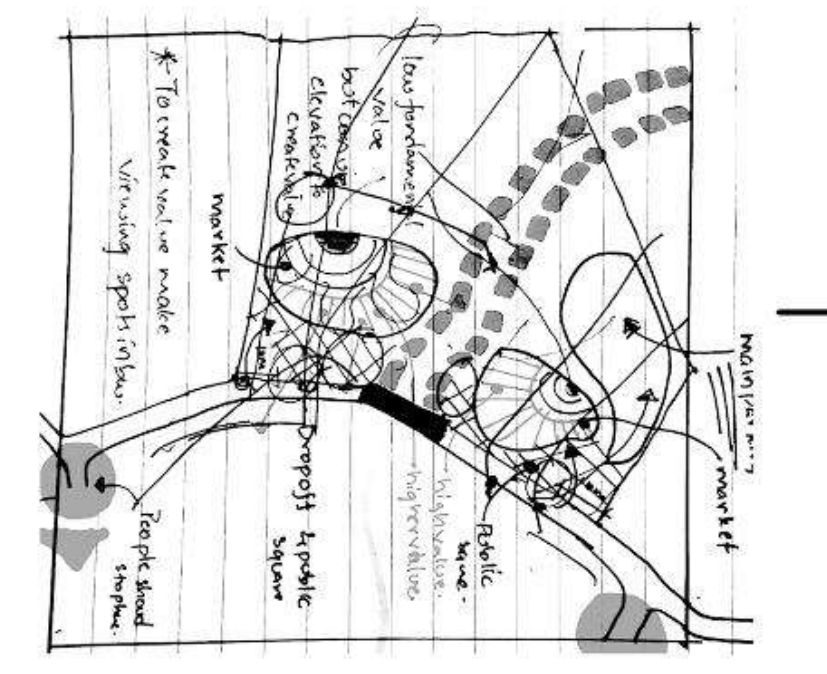 * To create value make
viewing spots inbw.
market
low fundamental
value
but can use
elevation to
create value
Dropoff & public
square
People should
stop here.
high value.
higher value.
Public
square.
main
market